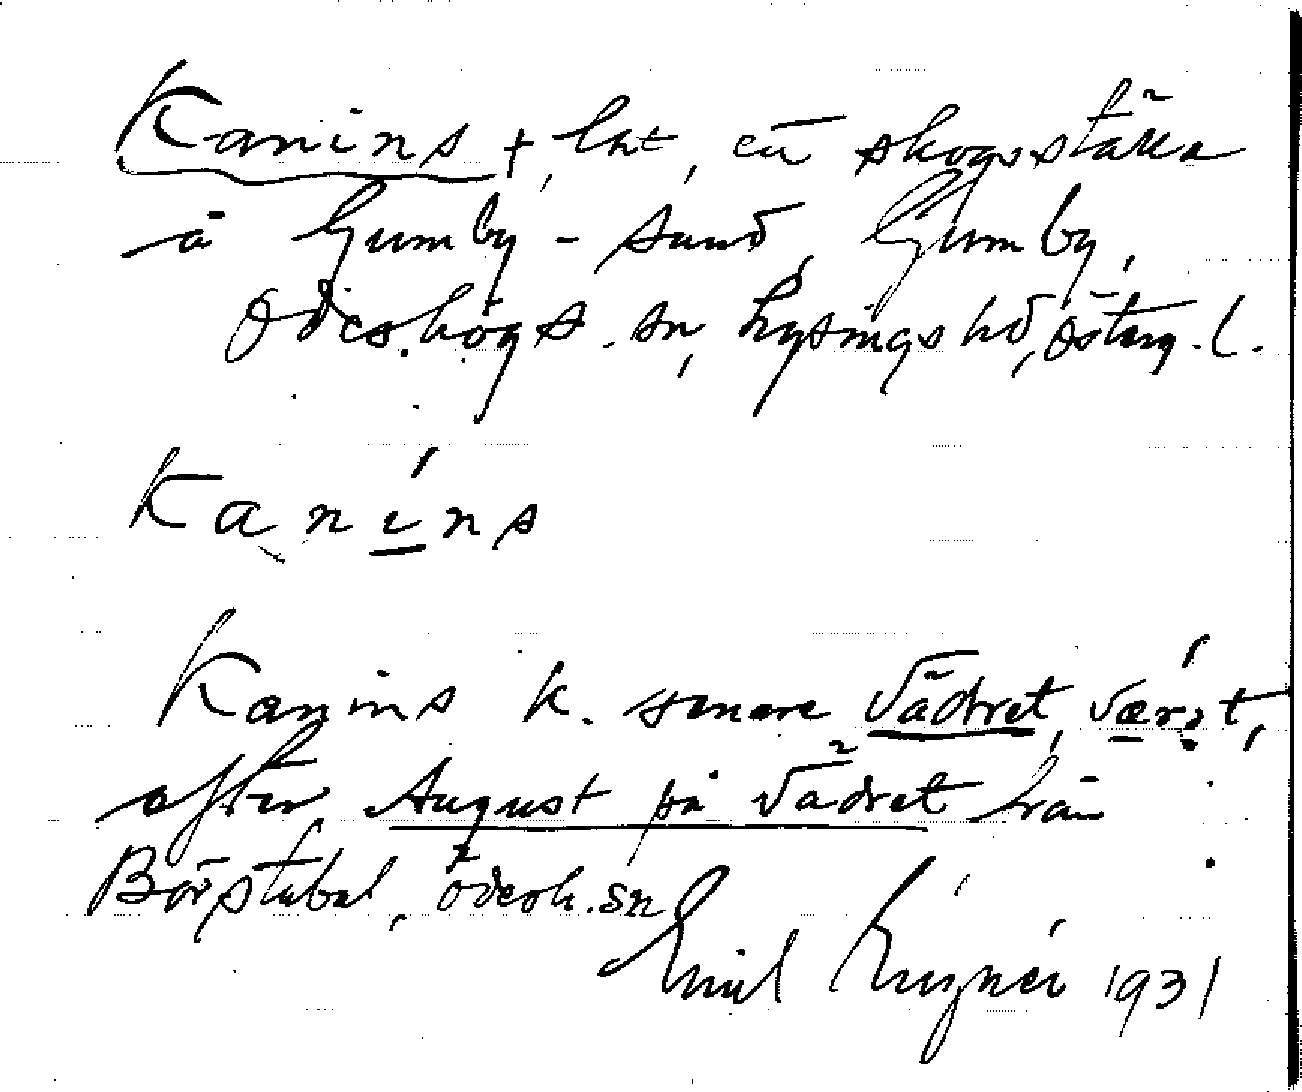 Kanins +, lht, en skogsställa
å Gumby-sund, Gumby,
Ödeshögs sn, Lysings hd, Österg. l.
Kanins
Kanins k. senare Vädret, værət,
efter August på Vädret från
Börstabal, Ödesh. sn
Emil 1931